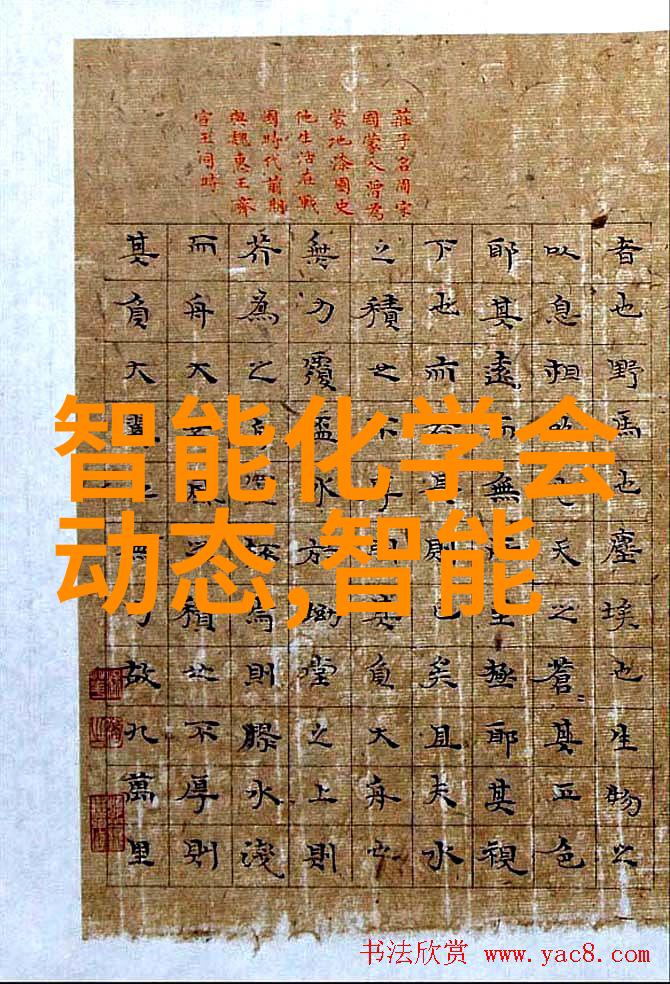 莊子名周宋
國蒙人曾為
蒙地漆園史
他生活在戰
國時代前期
與魏惠王齊
宣王同時
者也野馬也塵埃也生物之
以息相吹也天之蒼〃其正色
耶其遠而無所至極耶其視
下也而其則已矣且夫水
之積也不厚則其負大舟也
無力覆盃水於坳堂之上則
芥為之舟置杯焉則膠水淺
而舟大也風之積也不厚則
其負大翼也無力故九萬里
智能化学会
动态,智能
书法欣赏 www.yac8.com